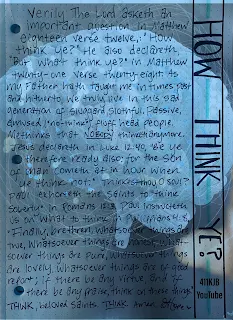 Verily The Lord asketh an
important question in Matthew
eighteen verse twelve, "How
think ye?" He also declareth,
"But what think ye?" in Matthew
twenty-one verse twenty-eight. As
my Father hath taught me in times past
and hitherto, we truly live in this sad
generation of sluggard, slothful, passive,
"do-nothing", fluff head people.
Methinks that NOBODY thinketh anymore.
Jesus declareth in Luke 12:40, "Be ye
therefore ready also: for the Son
of man cometh at an hour when
ye think not." Thinkest thou so?
Paul exhorteth the saints to "think
soberly" in Romans 12:3. Paul instructeth
us on what to think in Philippians 4:8,
"Finally, brethren, whatsoever things are
true, whatsoever things are honest, what-
soever things are pure, whatsoever things
are lovely, whatsoever things are of good
report; if there be any virtue and if
there be any praise, think on these things."
THINK, beloved saints. THINK. Amen.
HOW THINK YE?
411KJB
YouTube